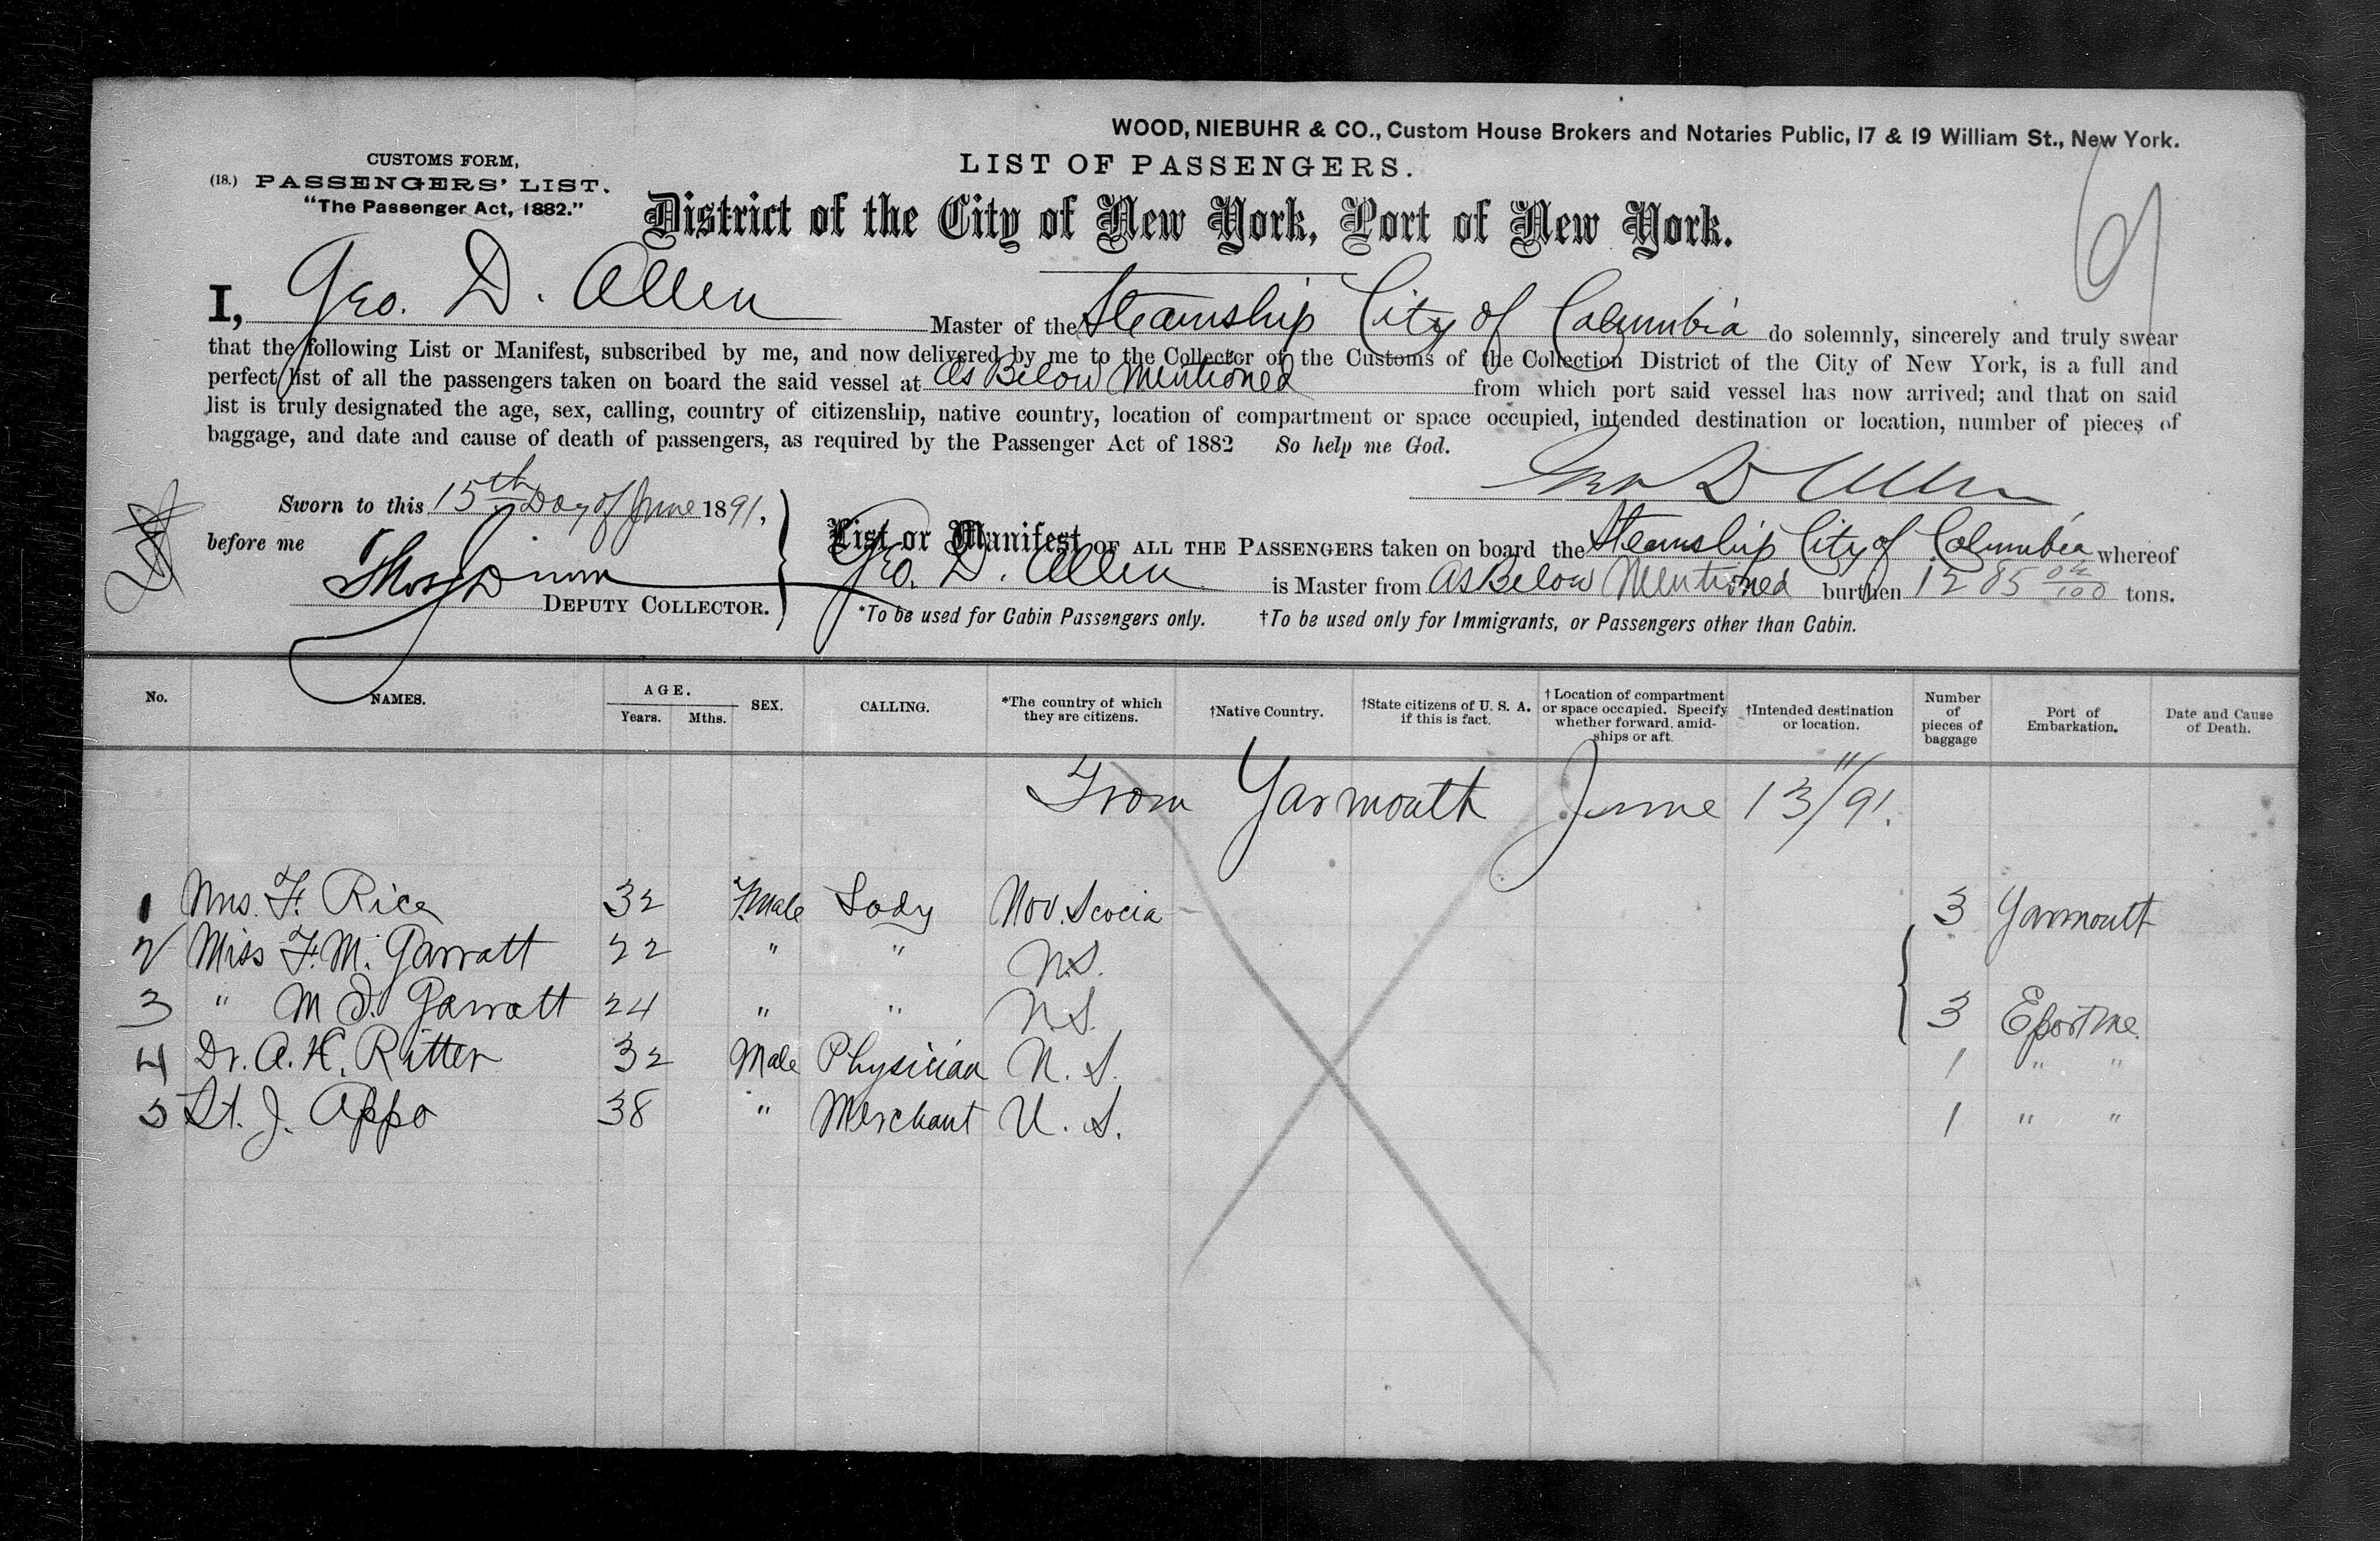 WOOD, NIEBUHR & CO., Custom House Brokers and Notaries Public, 17 & 19 William St., New York.
CUSTOMS FORM,
LIST OF PASSENGERS.
(18.) PASSENGERS' LIST.
"The Passenger Act, 1882."
District of the City of New York, Port of New York.
I, Geo. D. Allen Master of the Steamship City of Columbia do solemnly, sincerely and truly swear
that the following List or Manifest, subscribed by me, and now delivered by me to the Collector of the Customs of the Collection District of the City of New York, is a full and
perfect list of all the passengers taken on board the said vessel at As Below Mentioned from which port said vessel has now arrived; and that on said
list is truly designated the age, sex, calling, country of citizenship, native country, location of compartment or space occupied, intended destination or location, number of pieces of
baggage, and date and cause of death of passengers, as required by the Passenger Act of 1882 So help me God.
Geo D Allen
Sworn to this 15th Day of June 1891,
before me
DEPUTY COLLECTOR.
List or Manifest OF ALL THE PASSENGERS taken on board the Steamship City of Columbia whereof
Geo. D. Allen is Master from As Below Mentioned burthen 1285 tons.
*To be used for Cabin Passengers only. †To be used only for Immigrants, or Passengers other than Cabin.
No. NAMES. AGE. Years. Mths. SEX. CALLING. *The country of which they are citizens. †Native Country. †State citizens of U. S. A. if this is fact. †Location of compartment or space occupied. Specify whether forward, amidships or aft. †Intended destination or location. Number of pieces of baggage Port of Embarkation. Date and Cause of Death.
From Yarmouth June 13/91.
1 Mrs. F. Rice 32 F.Male Lady Nov. Scocia 3 Yarmouth
2 Miss F. M. Garratt 22 " " N.S.
3 " M D. Garratt 24 " " N.S. 3 Eport Me.
4 Dr. A. K. Ritter 32 Male Physician N. S. 1 " "
5 St. J. Appo 38 " Merchant U. S. 1 " "